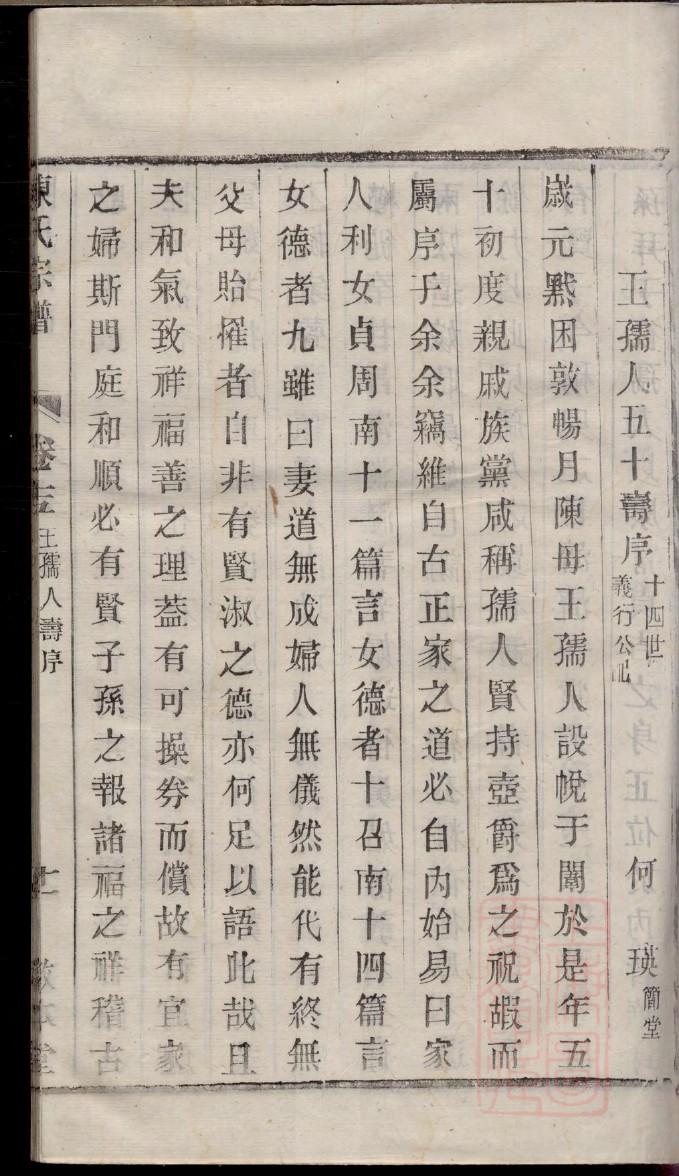 王孺人五十壽序 十四世義行公配 何瑛 簡堂
歲元黓困敦暢月陳母王孺人設帨于闈於是年五
十初度親戚族黨咸稱孺人賢持壺爵爲之祝嘏而
屬序于余余竊維自古正家之道必自內始易曰家
人利女貞周南十一篇言女德者十召南十四篇言
女德者九雖曰妻道無成婦人無儀然能代有終無
父母貽罹者自非有賢淑之德亦何足以語此哉且
夫和氣致祥福善之理葢有可操券而償故有宜家
之婦斯門庭和順必有賢子孫之報諸福之祥稽古
陳氏宗譜 卷十五 王孺人壽序 十一